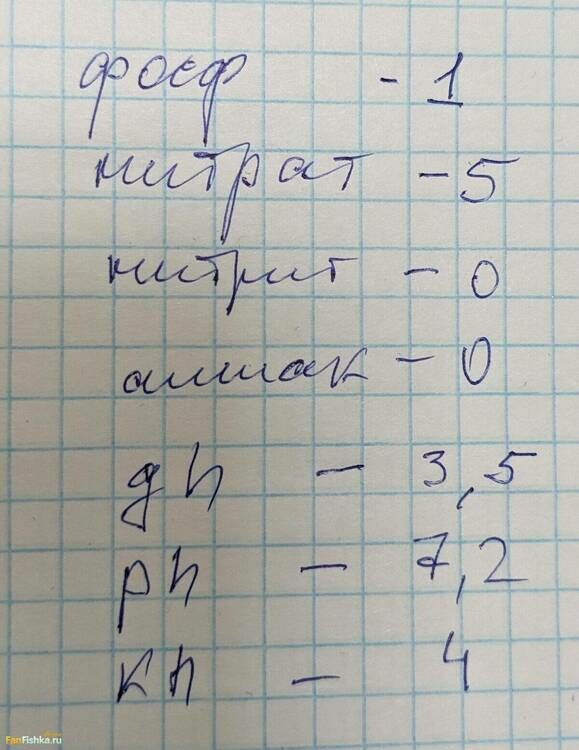 фосф - 1
нитрат - 5
нитрит - 0
аммак - 0
gh - 3,5
ph - 7,2
кh - 4
FanFishka.ru